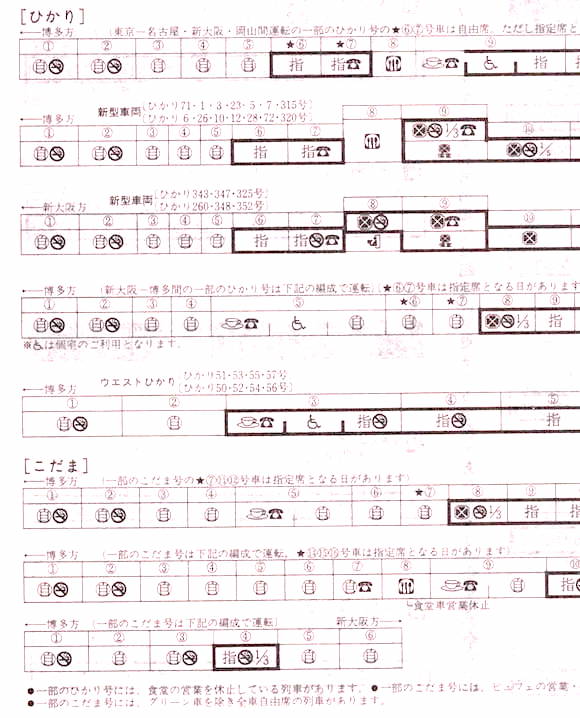 [ひかり]
←博多方 (東京ー名古屋・新大阪・岡山間運転の一部のひかり号の★⑥⑦号車は自由席。ただし指定席と
① ② ③ ④ ⑤ ★⑥ ★⑦ ⑧ ⑨
自 自 自 自 自 指 指 指 指
新型車両(ひかり71・1・3・23・5・7・315号)
(ひかり6・26・10・12・28・72・320号)
←博多方
① ② ③ ④ ⑤ ⑥ ⑦ ⑧ ⑨ ⑩
自 自 自 自 自 指 指 1/3 1/3
新型車両(ひかり343・347・325号)
(ひかり260・348・352号)
←新大阪方
① ② ③ ④ ⑤ ⑥ ⑦ ⑧ ⑨ ⑩
自 自 自 自 自 指 指
←博多方 (新大阪ー博多間の一部のひかり号は下記の編成で運転) ★⑥⑦号車は指定席となる日があります
① ② ③ ④ ⑤ ★⑥ ★⑦ ⑧ ⑨
自 自 自 自 自 自 自 1/3 指
※は個室のご利用となります。
ウエストひかり(ひかり51・53・55・57号)
(ひかり50・52・54・56号)
←博多方
① ② ③ ④ ⑤
自 自 指 指 指
[こだま]
←博多方 (一部のこだま号の★⑦⑪⑫号車は指定席となる日があります)
① ② ③ ④ ⑤ ⑥ ★⑦ ⑧ ⑨
自 自 自 自 自 自 自 1/3 指 指
←博多方 (一部のこだま号は下記の編成で運転。★号車は指定席となる日があります)
① ② ③ ④ ⑤ ⑥ ⑦ ⑧ ⑨ ⑩
自 自 自 自 自 自 自 自 指
食堂車営業休止
←博多方 (一部のこだま号は下記の編成で運転) 新大阪方→
① ② ③ ④ ⑤ ⑥
自 自 自 指1/3 自 自
●一部のひかり号には、食堂の営業を休止している列車があります。●一部のこだま号には、ビュフェの営業・
●一部のこだま号には、グリーン車を除き全車自由席の列車があります。